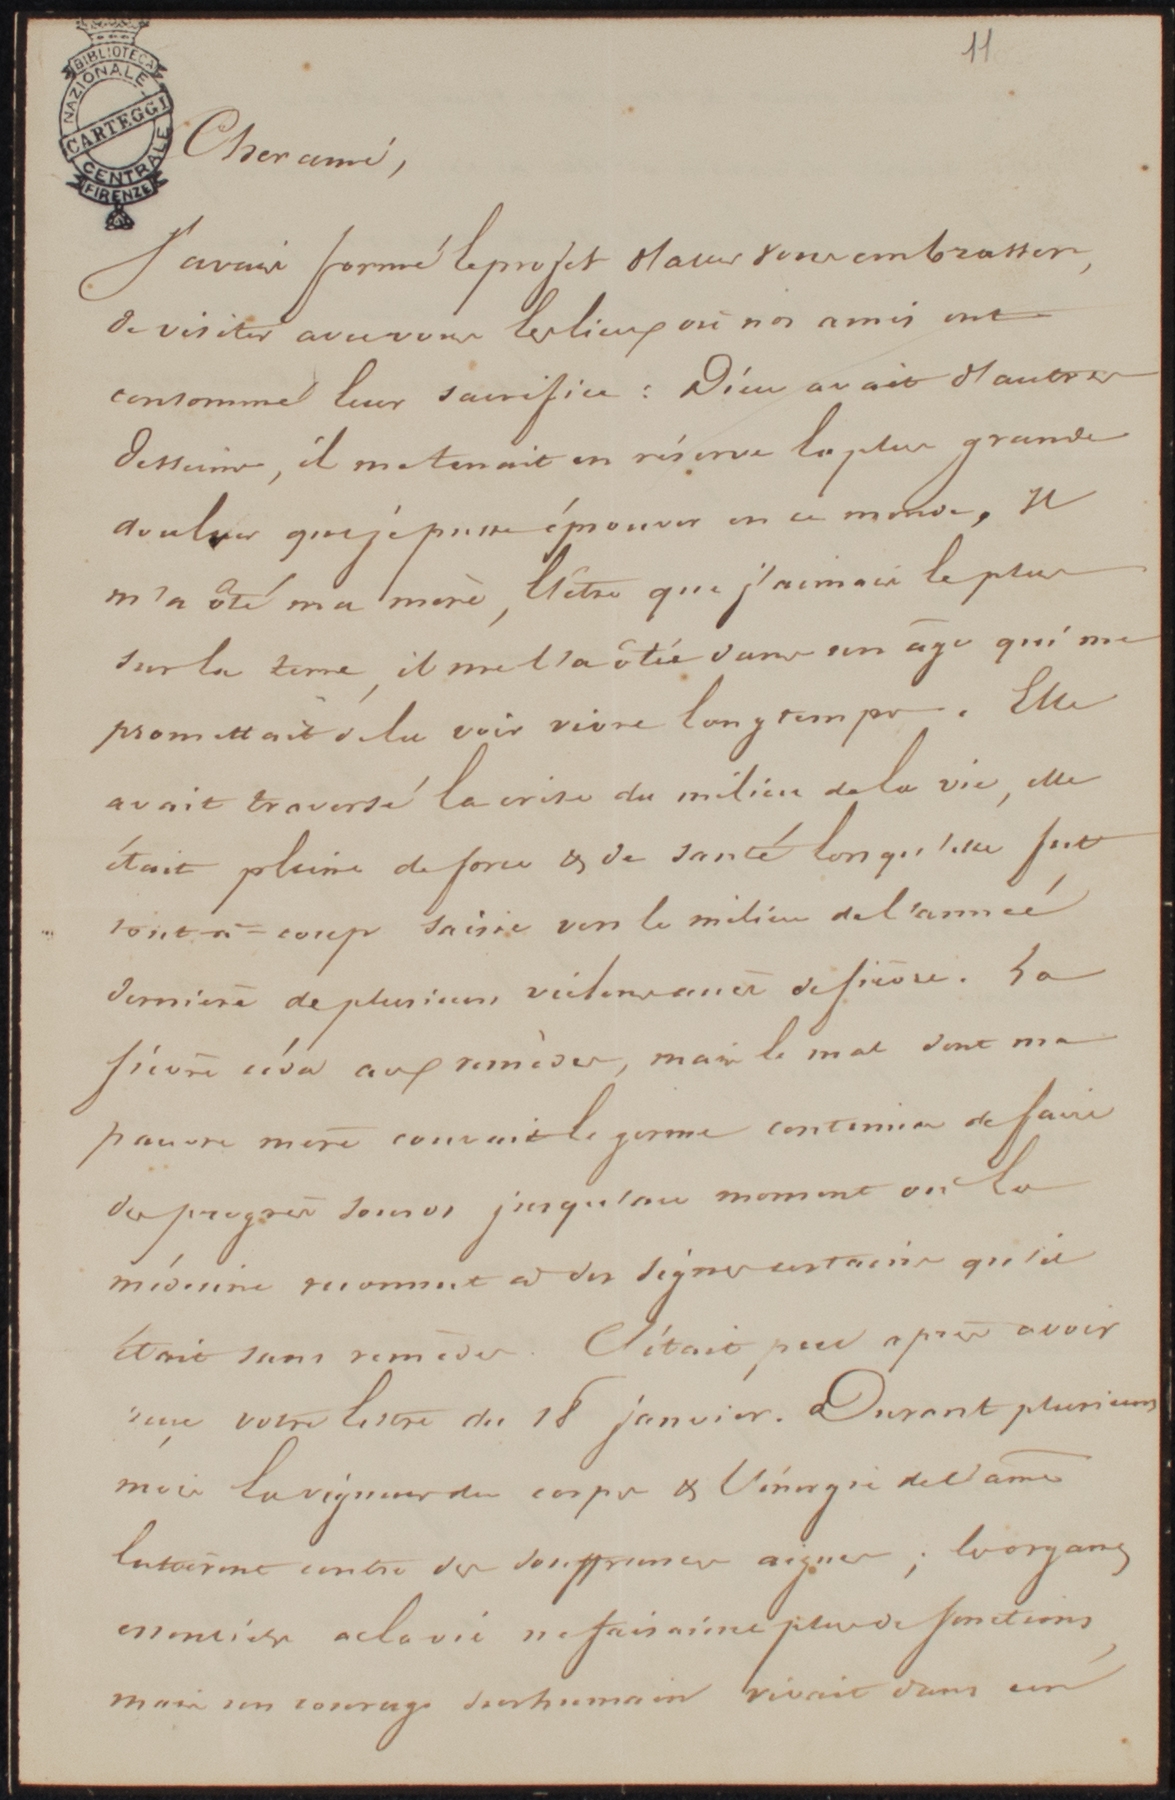 11
BIBLIOTECA
NAZIONALE
CARTEGGI
CENTRALE
FIRENZE
Cher ami,
J'avais formé le projet d'aller vous embrasser,
de visiter avec vous les lieux où nos amis ont
consommé leur sacrifice : Dieu avait d'autres
desseins, il me tenait en réserve la plus grande
douleur que je pusse éprouver en ce monde. Il
m'a ôté ma mère, l'être que j'aimais le plus
sur la terre, il me l'a ôtée dans un âge qui me
promettait de la voir vivre longtemps. Elle
avait traversé la crise du milieu de la vie, elle
était pleine de force & de santé lorsqu'elle fut
tout-à-coup saisie vers le milieu de l'année
dernière de plusieurs violens accès de fièvre. La
fièvre céda aux remèdes, mais le mal dont ma
pauvre mère couvait le germe continua de faire
des progrès sourds jusqu'au moment où la
médecine reconnut à des signes certains qu'il
était sans remèdes. C'était peu après avoir
reçu votre lettre du 18 janvier. Durant plusieurs
mois la vigueur du corps & l'énergie de l'âme
luttèrent contre des souffrances aigues ; les organes
essentiels a la vie ne faisaient plus de fonctions,
mais un courage surhumain vivait dans un